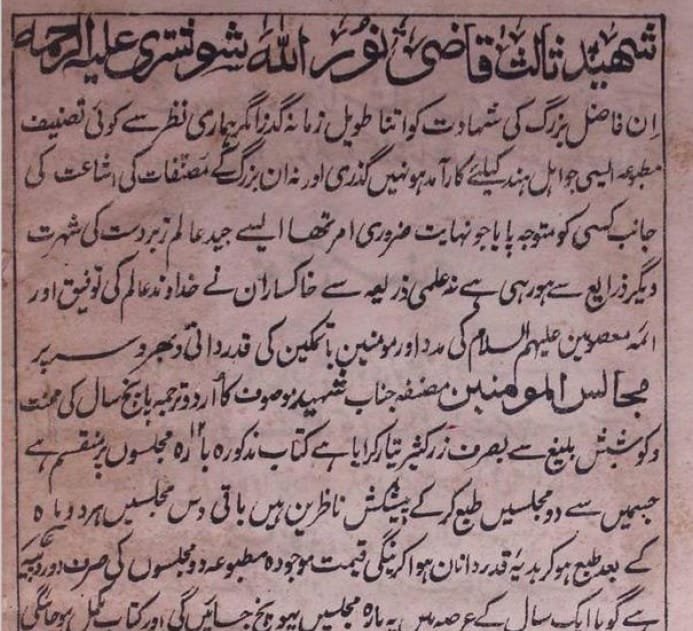 شہید ثالث قاضی نور اللہ شوشتری علیہ الرحمہ
اِن فاضل بزرگ کی شہادت کو اتنا طویل زمانہ گذرا مگر ہماری نظر سے کوئی تصنیف
مطبوعہ ایسی جو اہل ہند کیلئے کارآمد ہو نہیں گذری اور نہ ان بزرگ کے مصنّفات کی اشاعت کی
جانب کسی کو متوجہ پایا جو نہایت ضروری امر تھا ایسے جید عالم زبردست کی شہرت
دیگر ذرایع سے ہو رہی ہے نہ علمی ذریعہ سے خاکساران نے خداوند عالم کی توفیق اور
ائمہ معصومین علیہم السلام کی مدد اور مومنین باتمکین کی قدردانی و بھروسہ پر
مجالس المومنین مصنفہ جناب شہید موصوف کا اردو ترجمہ پانچ سال کی محنت
و کوشش بلیغ سے بصرف زر کثیر تیار کرایا ہے کتاب مذکورہ بارہ مجلسوں پر منقسم ہے
جسمیں سے دو مجلسیں طبع کر کے پیشکش ناظرین ہیں باقی دس مجلسیں ہر دو ماہ
کے بعد طبع ہو کر ہدیۂ قدردانان ہوا کرینگی قیمت موجودہ مطبوعہ دو مجلسوں کی صرف دو روپیہ
ہے گویا ایک سال کے عرصہ میں یہ بارہ مجلسیں پہونچ جائیں گی اور کتاب مکمل ہو جائیگی